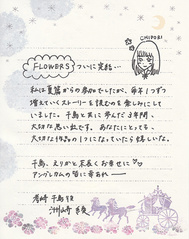 CHIDORI
FLOWERS ついに完結…
私は夏篇からの参加でしたが、毎年1つずつ
増えていくストーリーを読むのを楽しみにして
いました。千鳥と共に歩んだ3年間、
大切な思い出です。あなたにとっても、
大切な1作品の1つになっていたら嬉しいな。
千鳥、えりかと末長くお幸せに♡
アングレカムの皆に幸あれ―
考崎 千鳥役
洲崎 綾